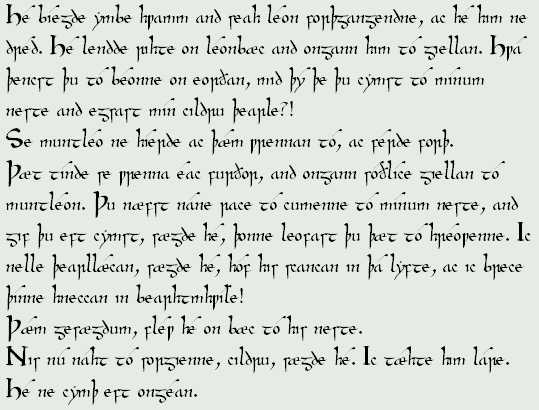 Hé bíegde ýmbe hƿamm and seah léon forþgangendne, ac hé him ne
dréd. Hé lendde rihte on léonbæc and ongann him tó giellan. Hƿá
þencst þu tó béonne on eorðan, mid þý þe þu cýmst tó mínum
neste and egsast mín cildru þearle?!
Se muntléo ne híerde ac þǽm ƿrennan tó, ac férde forþ.
Þæt tínde se ƿrenna éac furðor, and ongann sóðlíce giellan tó
muntléon. Þu næfst náne race tó cumenne tó mínum neste, and
gif þu eft cýmst, sægde hé, þonne leofast þu þæt tó hréoƿenne. Ic
nelle þearllǽcan, sægde hé, hóf his scancan in þá lýfte, ac ic brece
þínne hneccan in bearhtmhƿíle!
Þǽm gesægdum, fléƿ hé on bæc tó his neste.
Nis nú náht tó forgienne, cildru, sægde hé. Ic tǽhte him láre.
Hé ne cýmþ eft ongéan.